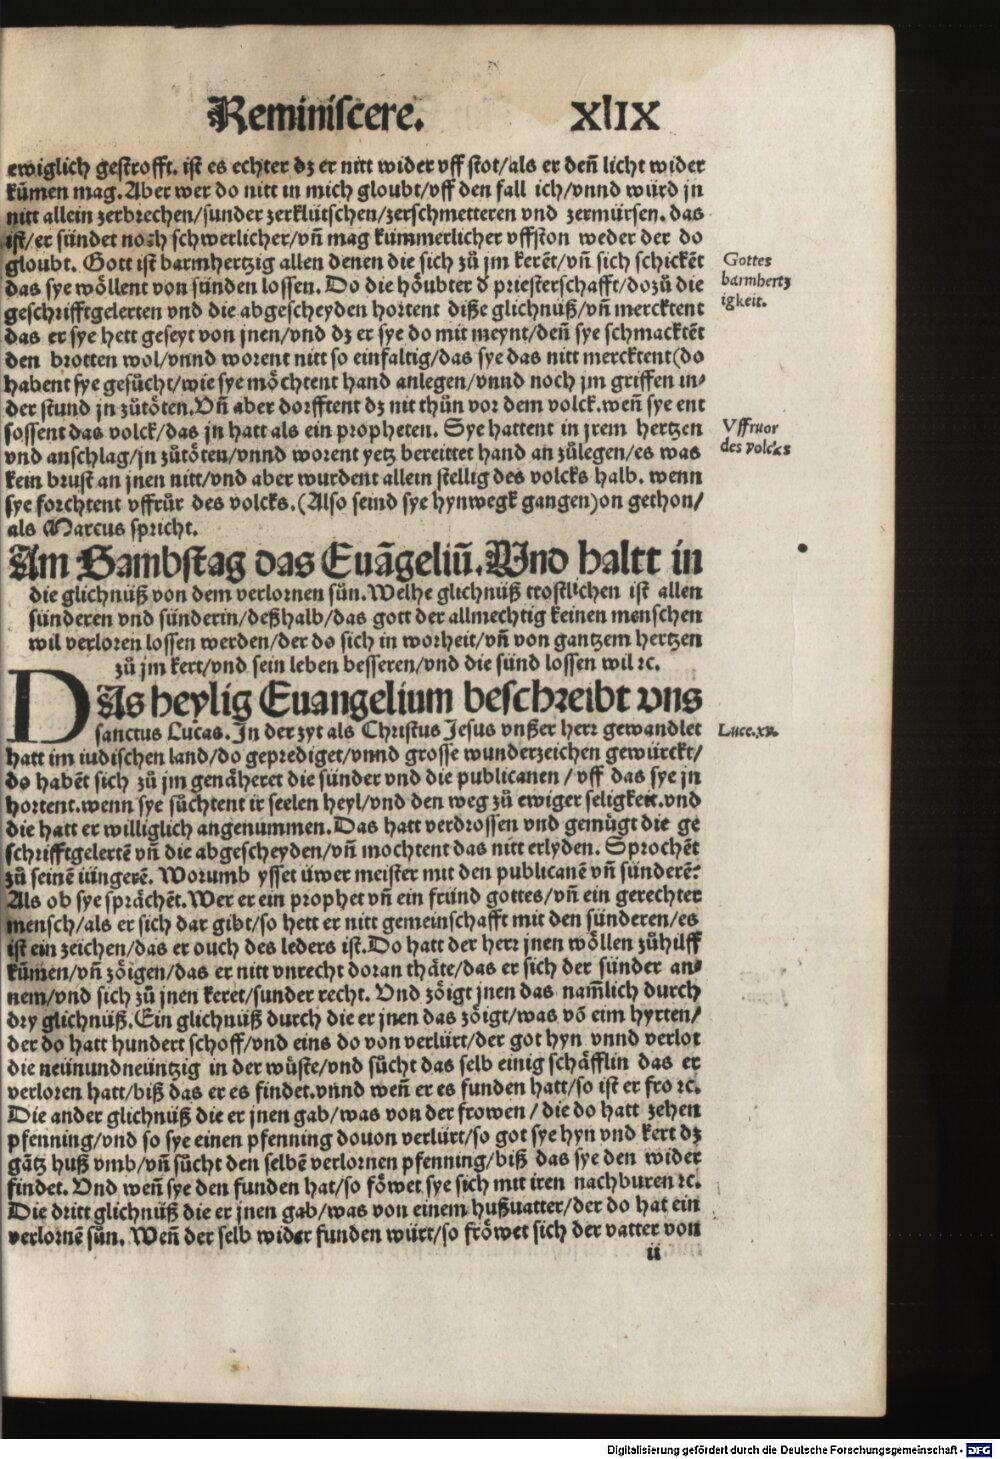 Reminiscere. XlIX
ewiglich gestrofft. ist es echter dz er nitt wider vff stot/als er deñ licht wider
kũmen mag. Aber wer do nitt in mich gloubt/vff den fall ich/vnnd würd jn
nitt allein zerbrechen/sunder zerklütschen/zerschmetteren vnd zermürsen. das
ist/er sündet noch schwerlicher/vñ mag kümmerlicher vffston weder der do
gloubt. Gott ist barmhertzig allen denen die sich zů jm kerẽt/vñ sich schickẽt
das sye wöllent von sünden lossen. Do die höubter d priesterschafft/dozů die
geschrifftgelerten vnd die abgescheyden hortent diße glichnüß/vñ mercktent
das er sye hett geseyt von jnen/vnd dz er sye do mit meynt/deñ sye schmacktẽt
den brotten wol/vnnd worent nitt so einfaltig/das sye das nitt mercktent(do
habent sye gesůcht/wie sye möchtent hand anlegen/vnnd noch jm griffen in⸗
der stund jn zůtöten. Vñ aber dorfftent dz nit thůn vor dem volck. weñ sye ent
sossent das volck/das jn hatt als ein propheten. Sye hattent in jrem hertzen
vnd anschlag/jn zůtöten/vnnd worent yetz bereittet hand an zůlegen/es was
kein brust an jnen nitt/vnd aber wurdent allein stellig des volcks halb. wenn
sye forchtent vffrůr des volcks.(Also seind sye hynwegk gangen)on gethon/
als Marcus spricht.
Gottes
barmhertz
igkeit.
Vffruor
des volcks
Am Sambstag das Euãgeliũ. Und haltt in
die glichnüß von dem verlornen sůn. Welhe glichnüß trostlichen ist allen
sünderen vnd sünderin/deßhalb/das gott der allmechtig keinen menschen
wil verloren lossen werden/der do sich in worheit/vñ von gantzem hertzen
zů jm kert/vnd sein leben besseren/vnd die sünd lossen wil ꝛc.
DAs heylig Euangelium beschreibt vns
sanctus Lucas. In der zyt als Christus Jesus vnßer herr gewandlet
Luce.xv.
hatt im iudischen land/do geprediget/vnnd grosse wunderzeichen gewürckt/
do habẽt sich zů jm genäheret die sünder vnd die publicanen / vff das sye jn
hortent. wenn sye sůchtent ir seelen heyl/vnd den weg zů ewiger seligkeit. vnd
die hatt er williglich angenummen. Das hatt verdrossen vnd gemügt die ge
schrifftgelertẽ vñ die abgescheyden/vñ mochtent das nitt erlyden. Sprochẽt
zů seinẽ iüngerẽ. Worumb ysset üwer meister mit den publicanẽ vñ sünderẽ?
Als ob sye sprächẽt. Wer er ein prophet vñ ein fründ gottes/vñ ein gerechter
mensch/als er sich dar gibt/so hett er nitt gemeinschafft mit den sünderen/es
ist ein zeichen/das er ouch des leders ist. Do hatt der herr jnen wöllen zůhilff
kũmen/vñ zöigen/das er nitt vnrecht doran thäte/das er sich der sünder an⸗
nem/vnd sich zů jnen keret/sunder recht. Vnd zöigt jnen das nam̃lich durch
dry glichnüß. Ein glichnüß durch die er jnen das zöigt/was võ eim hyrten/
der do hatt hundert schoff/vnd eins do von verlürt/der got hyn vnnd verlot
die neünundneüntzig in der wüste/vnd sůcht das selb einig schäfflin das er
verloren hatt/biß das er es findet. vnnd weñ er es funden hatt/so ist er fro ꝛc.
Die ander glichnüß die er jnen gab/was von der frowen / die do hatt zehen
pfenning/vnd so sye einen pfenning douon verlürt/so got sye hyn vnd kert dz
gãtz huß vmb/vñ sůcht den selbẽ verlornen pfenning/biß das sye den wider
findet. Vnd weñ sye den funden hat/so föwet sye sich mit iren nachburen ꝛc.
Die dritt glichnüß die er jnen gab/was von einem hußuatter/der do hat ein
verlornẽ sůn. Weñ der selb wider funden würt/so fröwet sich der vatter von
ii
Digitalisierung gefördert durch die Deutsche Forschungsgemeinschaft - DFG